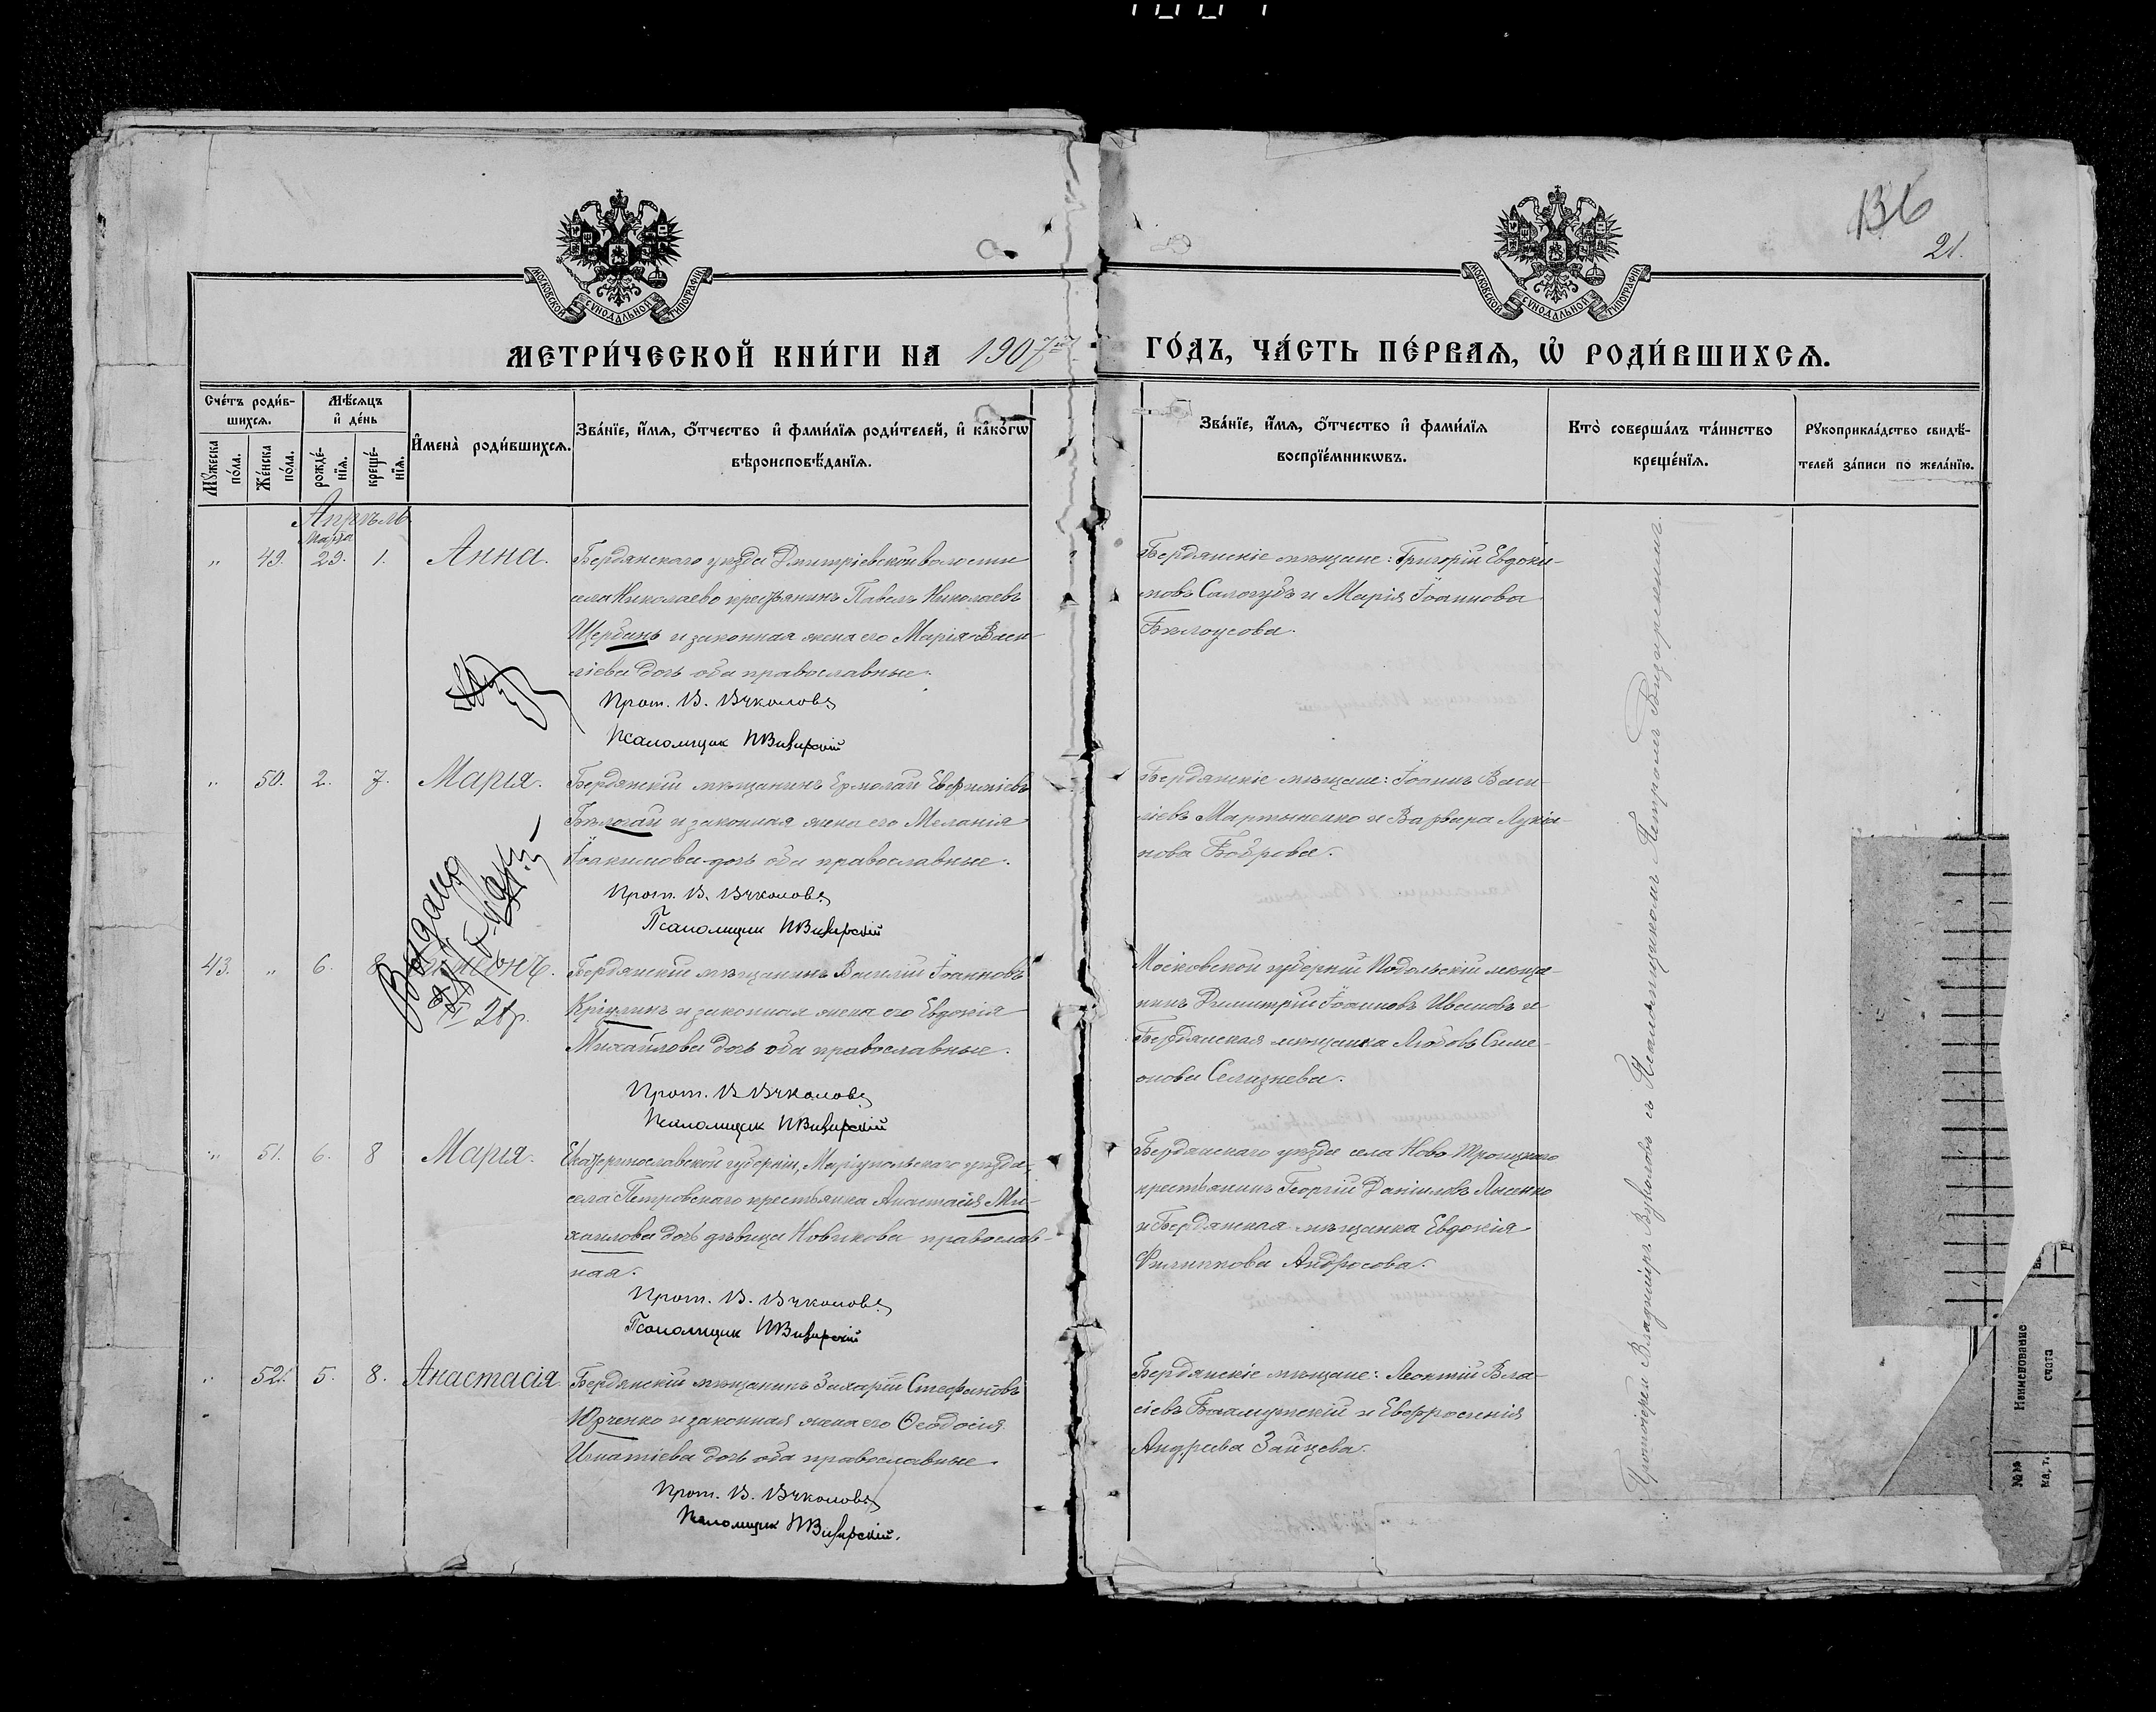 136
21.
МОСКОВСКОЙ СѴНОДАЛЬНОЙ ТИПОГРАФІИ
МОСКОВСКОЙ СѴНОДАЛЬНОЙ ТИПОГРАФІИ
МЕТРИ́ЧЕСКОЙ КНИ́ГИ НА 1907й ГО́ДЪ, ЧА́СТЬ ПЕ́РВАѦ, Ѡ҆ РОДИ́ВШИХСѦ.
Сче́тъ роди́в-
шихсѧ.
Мꙋ́жеска по́ла.
Же́нска по́ла.
Мѣ́сѧцъ
и҆ де́нь
рожде́-
нїѧ.
креще́-
нїѧ.
И҆мена̀ роди́вшихсѧ.
Зва́нїе, и҆́мѧ, ѻ҆́тчество и҆ фами́лїѧ роди́телей, и҆ како́гѡ
вѣроисповѣ́данїѧ.
Зва́нїе, и҆́мѧ, ѻ҆́тчество и҆ фами́лїѧ
воспрїе́мникѡвъ.
Кто̀ соверша́лъ та́инство
креще́нїѧ.
Рꙋкоприкла́дство свидѣ́-
телей за́писи по жела́нїю.
Апрѣль
Марта
„ 49. 29. 1. Анна.
Бердянскаго уѣзда Дмитріевской волости
села Николаево крестьянинъ Павелъ Николаевъ
Щербань и законная жена его Марія Васи-
ліева дочь оба православные.
Прот. В. Вуколовъ
Псаломщик П Визирскій
Бердянскіе мѣщане: Григорій Евдоки-
мовъ Салогубъ и Марія Іоаннова
Бѣлоусова.
„ 50. 2. 7. Марія.
Бердянскій мѣщанинъ Ермолай Евфиміевъ
Бѣлогай и законная жена его Меланія
Іоакимова дочь оба православные.
Прот. В. Вуколовъ
Псаломщик П Визирскій
Бердянскіе мѣщане: Іоаннъ Васи-
ліевъ Мартыненко и Варвара Лукіа-
нова Боброва.
Выдана
43. „ 6. 8
Бердянскій мѣщанинъ Василій Іоанновъ
Кріулинъ и законная жена его Евдокія
Михайлова дочь оба православные.
Прот. В Вуколовъ
Псаломщик П Визирскій
Московской губерніи Подольскій мѣща-
нинъ Димитрій Іоанновъ Ивановъ и
Бердянская мѣщанка Любовь Симе-
онова Селизнева.
„ 51. 6. 8 Марія.
Екатеринославской губерніи, Маріупольскаго уѣзда,
села Петровскаго крестьянка Анастасія Ми-
хаилова дочь дѣвица Новикова православ-
ная.
Прот. В. Вуколовъ
Псаломщик П Визирскій
Бердянскаго уѣзда села Ново Троицкаго
крестьянинъ Георгій Даніиловъ Лисенко
и Бердянская мѣщанка Евдокія
Филиппова Андросова.
„ 52. 5. 8. Анастасія
Бердянскій мѣщанинъ Захарій Стефановъ
Юрченко и законная жена его Ѳеодосія
Игнатіева дочь оба православные.
Прот. В. Вуколовъ
Псаломщик П Визирскій.
Бердянскіе мѣщане: Леонтій Вла-
сіевъ и Евфросинія
Андреева Зайцева.
Протоіерей Владиміръ Вуколовъ съ Псаломщикомъ Петромъ Визирскимъ.
Наименование
счета
№№